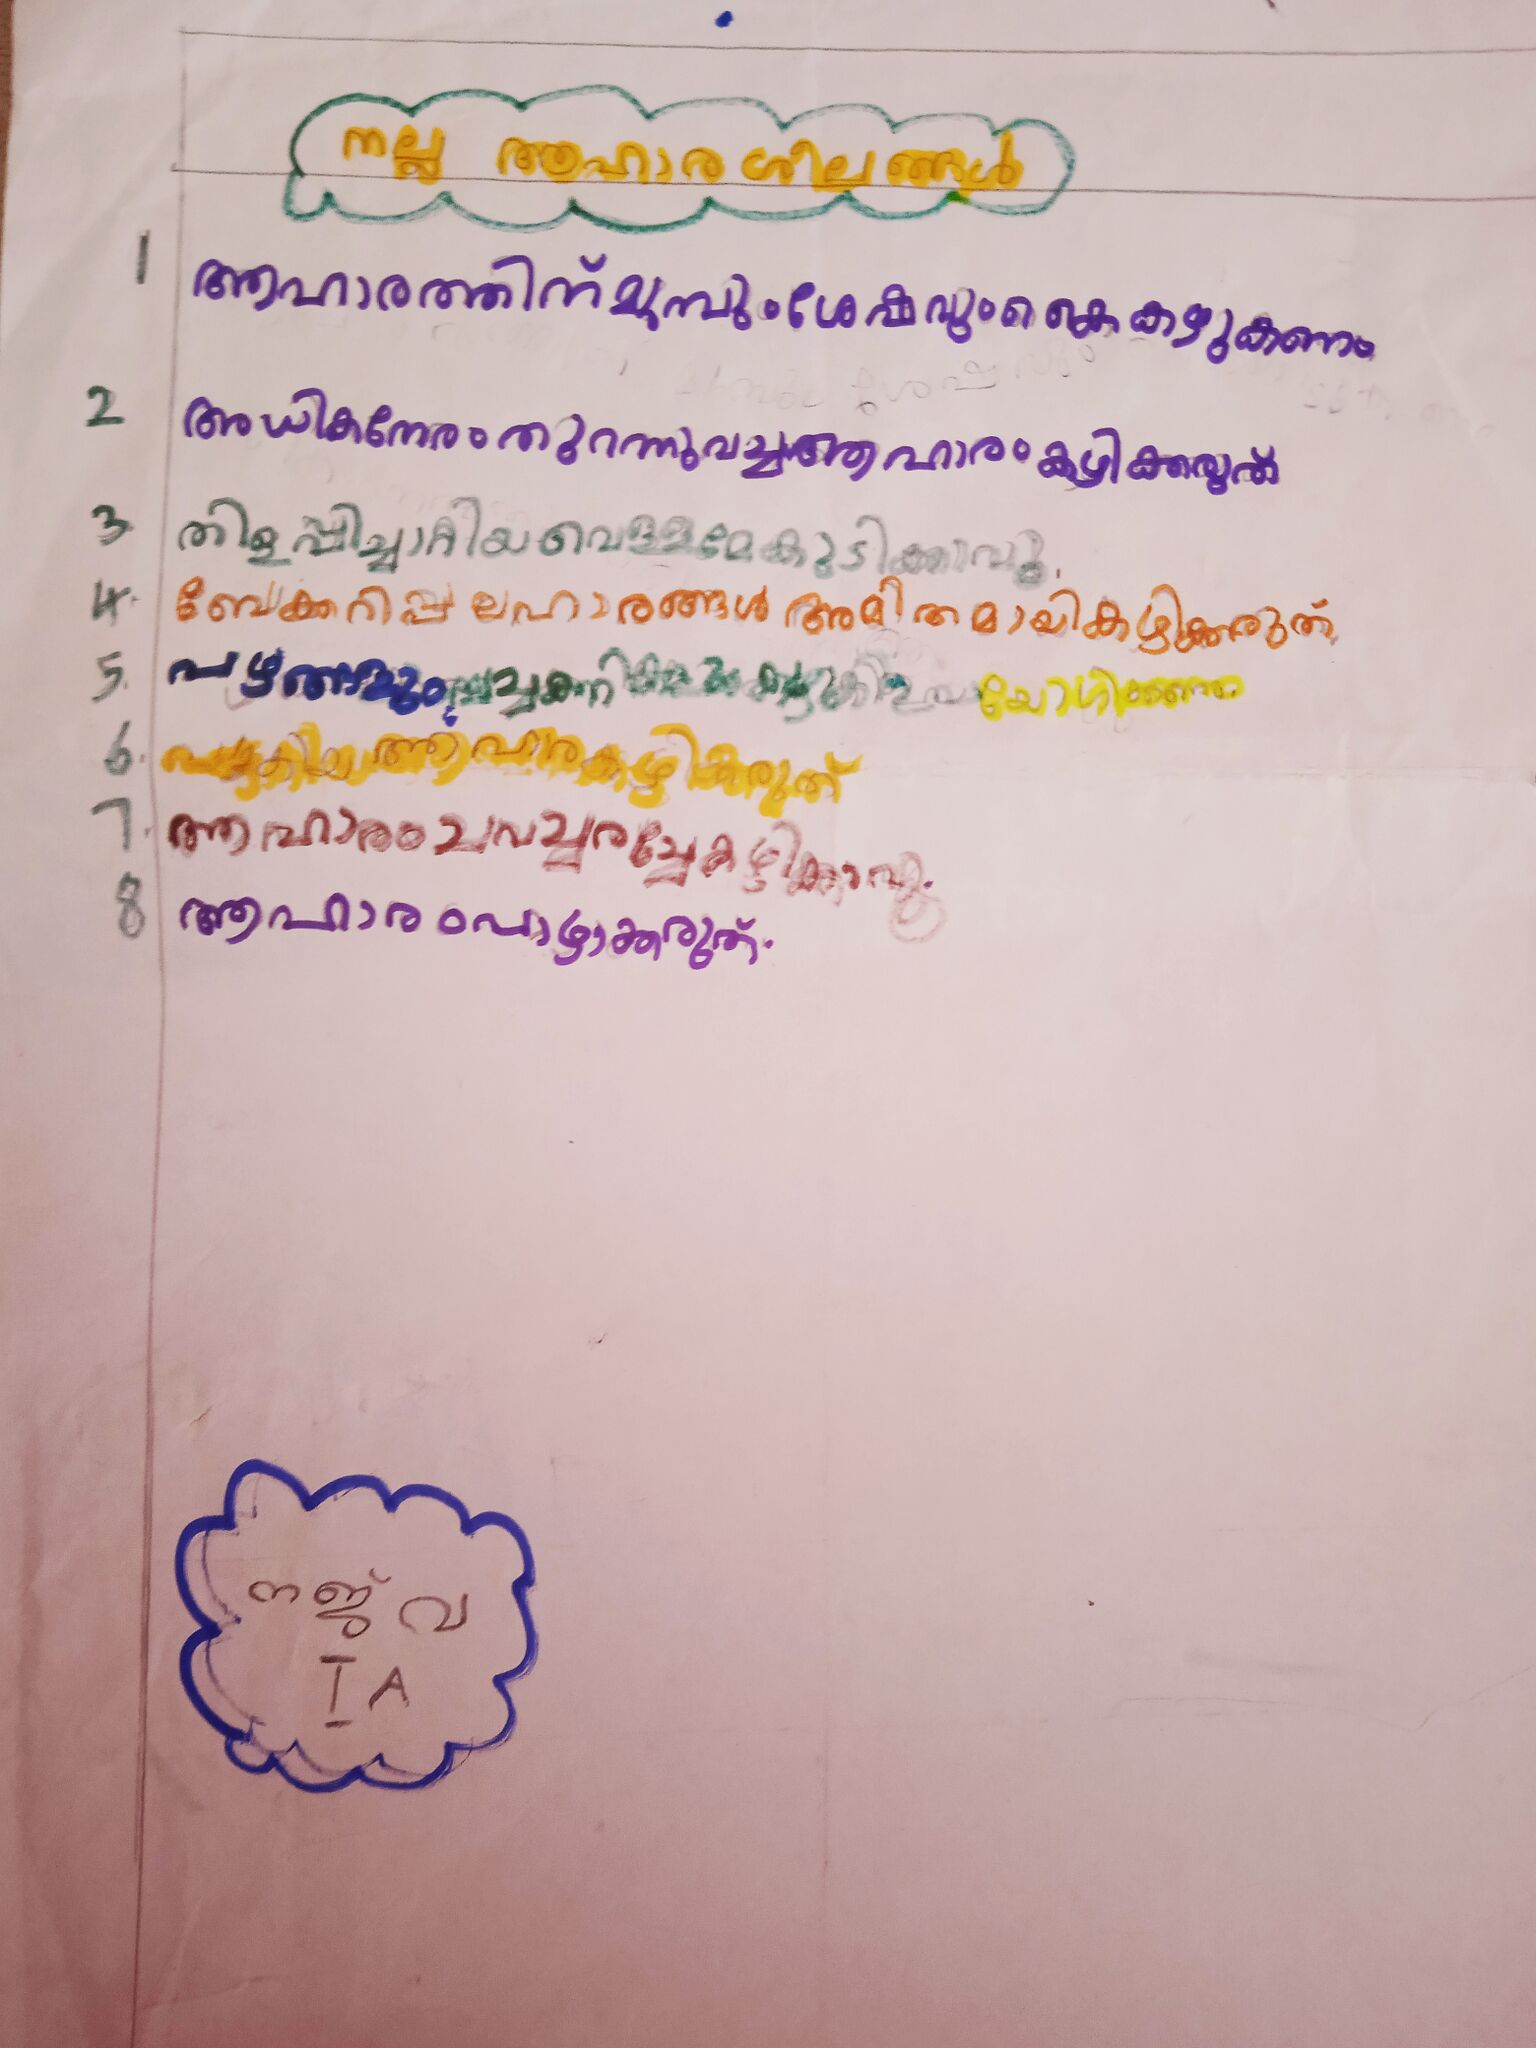 നല്ല ആഹാരശീലങ്ങൾ
1 ആഹാരത്തിന് മുമ്പും ശേഷവും കൈ കഴുകണം
2 അധികനേരം തുറന്നുവച്ച ആഹാരം കഴിക്കരുത്
3. തിളപ്പിച്ചാറിയ വെള്ളമേ കുടിക്കാവൂ.
4. ബേക്കറിപ്പലഹാരങ്ങൾ അമിതമായി കഴിക്കരുത്.
5. പഴങ്ങളും പച്ചക്കറികളും കഴുകി ഉപയോഗിക്കണം
6. പഴകിയ ആഹാരം കഴിക്കരുത്
7. ആഹാരം ചവച്ചരച്ചേ കഴിക്കാവൂ.
8 ആഹാരം പാഴാക്കരുത്.
നജ്‌വ
I A